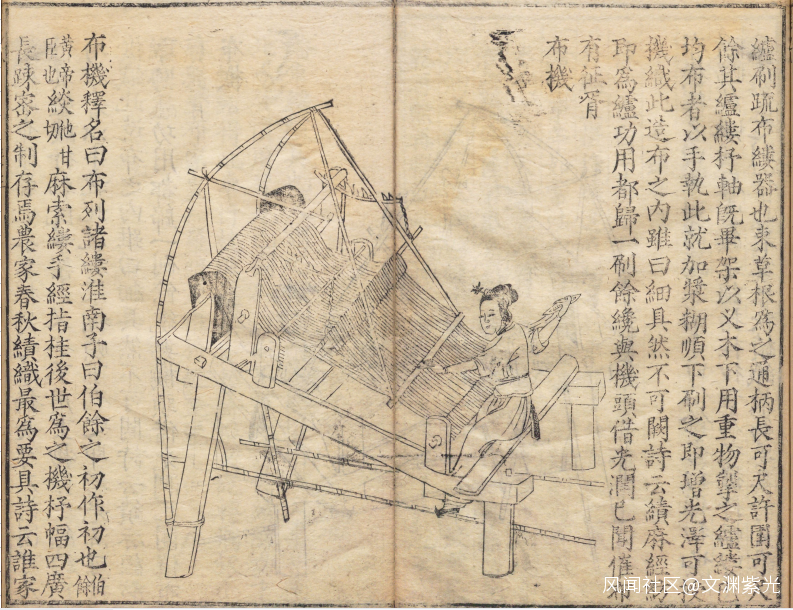 纑刷䟽布縷器也束草根為之通柄長可尺許圍可
餘其纑縷杼軸旣畢架以乂木下用重物掣之纑縷
均布者以手執此就加漿糊順下刷之即增光澤可
機織此造布之内雖曰細具然不可闕詩云績麻經
為纑功用都歸一刷餘纔與機頭借光潤已聞催
有征胥
布機
布機釋名曰布列諸縷淮南子曰伯餘之初作初也伯餘
黄帝臣也緂他甘切麻索縷手經指挂後世為之機杼幅四廣
長踈密之制存焉農家春秋績織最為要具詩云誰家
风闻社区@文渊紫光